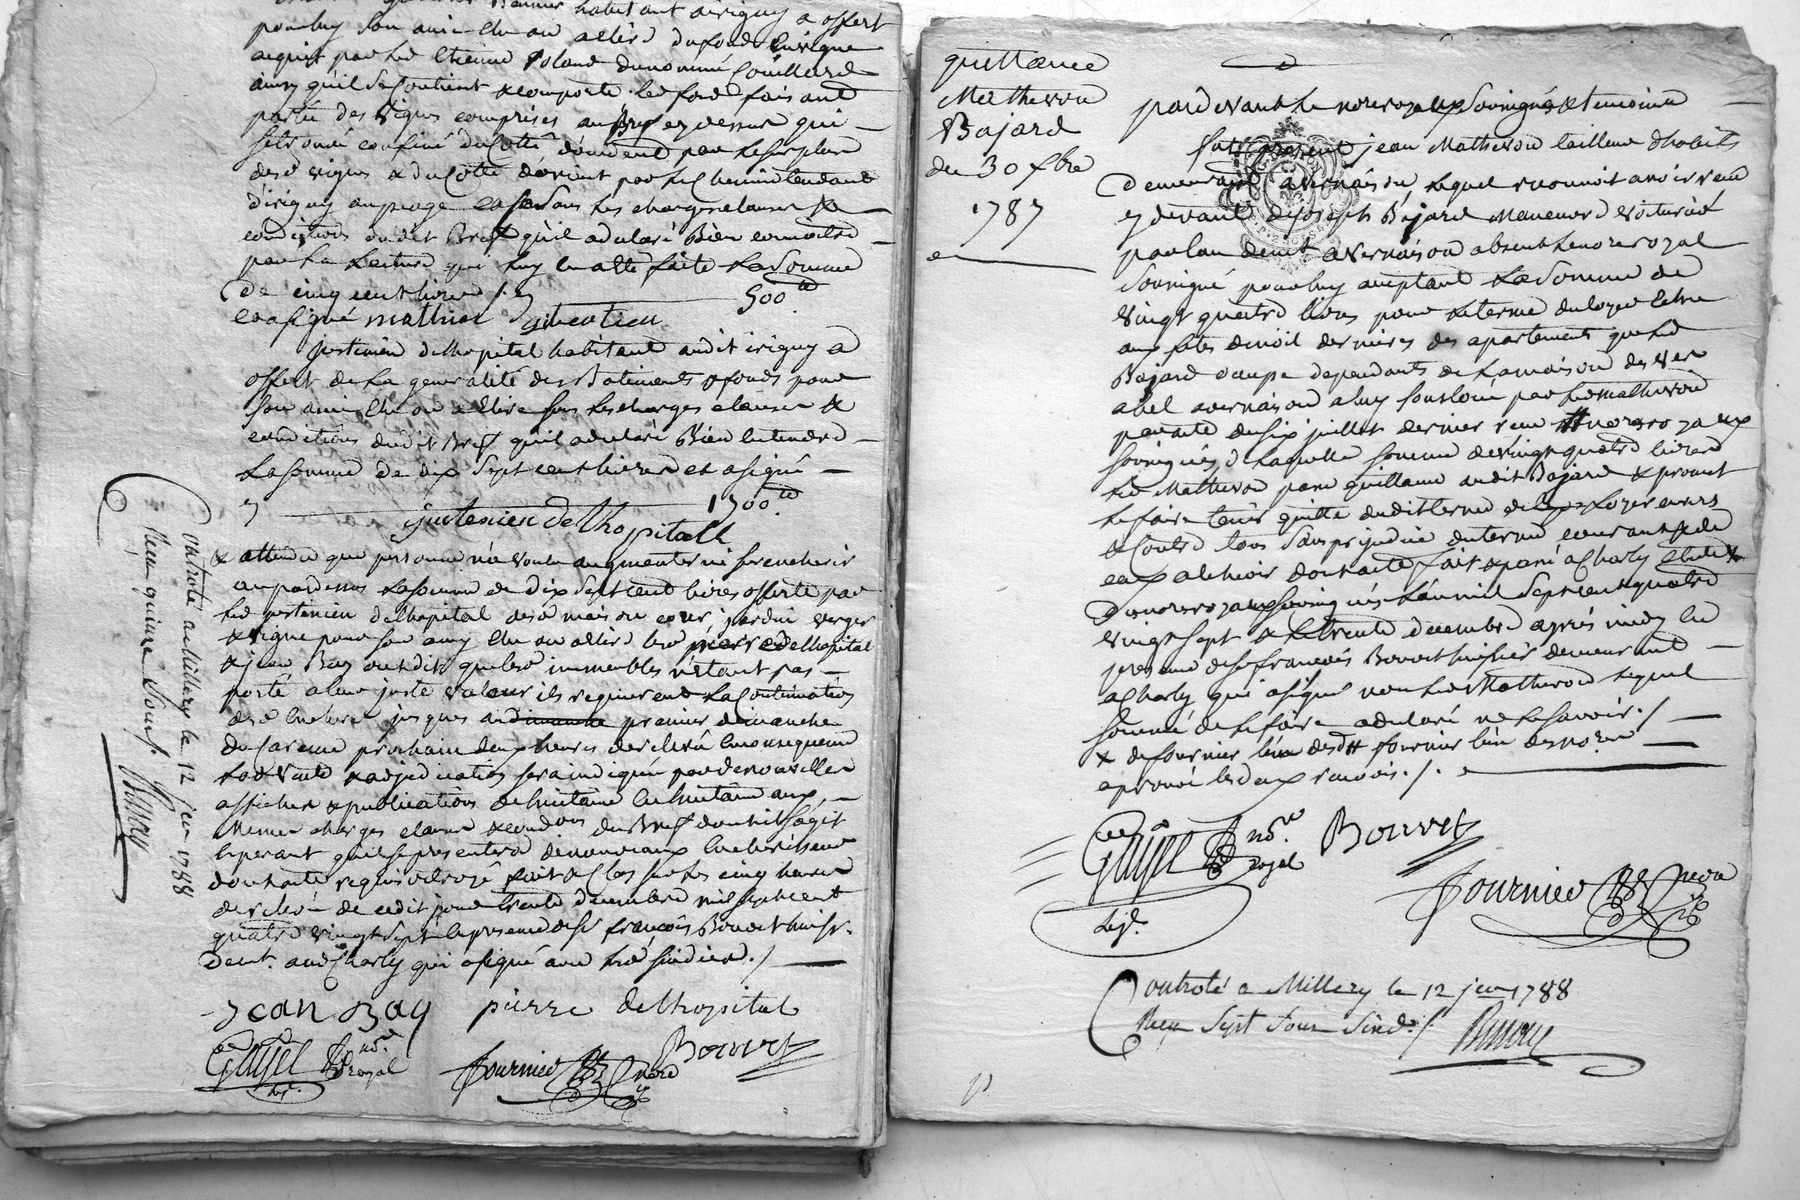 habitant dirigny a offert
pour luy son ami elu ou a elire du fond
acquis par led Etienne du nommé Couillard
ainsy qu'il se contient & comporte led fond faisant
partie des vignes comprises au Bref cy dessus qui
se trouve confiné du Coté d'occident par le surplus
desd vignes & du Coté d'orient par le Chemin tendant
d'irigny au peage sous les charges clauses &
conditions dudit Bref qu'il a declaré Bien connoitre
par la Lecture que luy en a été faite La Somme
de cinq cent livres
500ll
et a signé mathier
justinien delhopital habitant audit irigny a
offert de la generalité des Batiments & fonds pour
son ami elu ou a elire sous les charges clauses &
conditions dudit Bref qu'il a declaré Bien entendre
La somme de dix sept cent livres et a signé
1700ll
justenien delhopitall
& attendu que personne n'a voulu augmenter ni surencherir
au pardessus La somme de dix sept cent livres offerte par
led justinien delhopital desd maison cour, jardin verger
& vigne pour son amy elu ou a elire led pierre delhopital
& jean Bay ont dit que lesd immeubles n'etant pas
porté a leur juste valeur ils requierent La Continuation
desd encheres jusques au dimanche premier dimanche
du Careme prochain deux heures de relevé en consequence
Lad vente & adjudication sera indiquée par de nouvelles
affiches & publications de huitaine en huitaine aux
Memes charges clauses & condons du Bref dont il s'agit
esperant qu'il se presentera de nouveaux encherisseurs
dont acte requis octroyé fait & Clos sur les cinq heures
de relevé de cedit jour trente decembre mil sept cent
quatre vingt sept en presence de sr françois Bouvet huissr
demt. aud Charly qui a signé avec led sindics ./
jean Bay pierre delhopital
Gayet nore royal
Fournier nore
Bouvet
Controlé a Millery le 12 jer 1788
Reçu quinze Sous
quittance
Matheron
Bajard
du 30 xbre
1787
pardevant Les nores royaux Soussignés & temoins
fut present jean Matheron tailleur d'habits
demeurant a vernaison, Lequel reconnoit avoir reçu
cy devant de joseph Bajard Manœuvre & voiturier
par eau demt a vernaison absent Le nore royal
Soussigné pour luy acceptant La Somme de
vingt quatre livres pour le terme du loyer echu
aux fetes de noel dernieres des apartements que led
Bajard occupe dependants de La maison de
abel a vernaison a luy Sousloué par led Matheron
par acte du six juillet dernier reçu nores royaux
soussignés de Laquelle somme de vingt quatre livres
led Matheron passe quittance audit Bajard & promet
Le faire tenir quitte dudit terme de loyer envers
& contre tous sans prejudice du terme courant & de
ceux a echoir dont acte fait & passé a Charly etude
d'un nores royaux soussignés L'an mil sept cent quatre
vingt sept & Le trente decembre après midy en
presence de sr françois Bouvet huissier demeurant
a Charly, qui a signé non led Matheron Lequel
sommé de Le faire a declaré ne le savoir ./
& de fournier l'un desd fournier l'un des nores
aprouvé les deux renvois ./.
Gayet nore royal
Bouvet
Fournier nore
Controlé a Millery le 12 jer 1788
Reçu Sept Sous Six d.